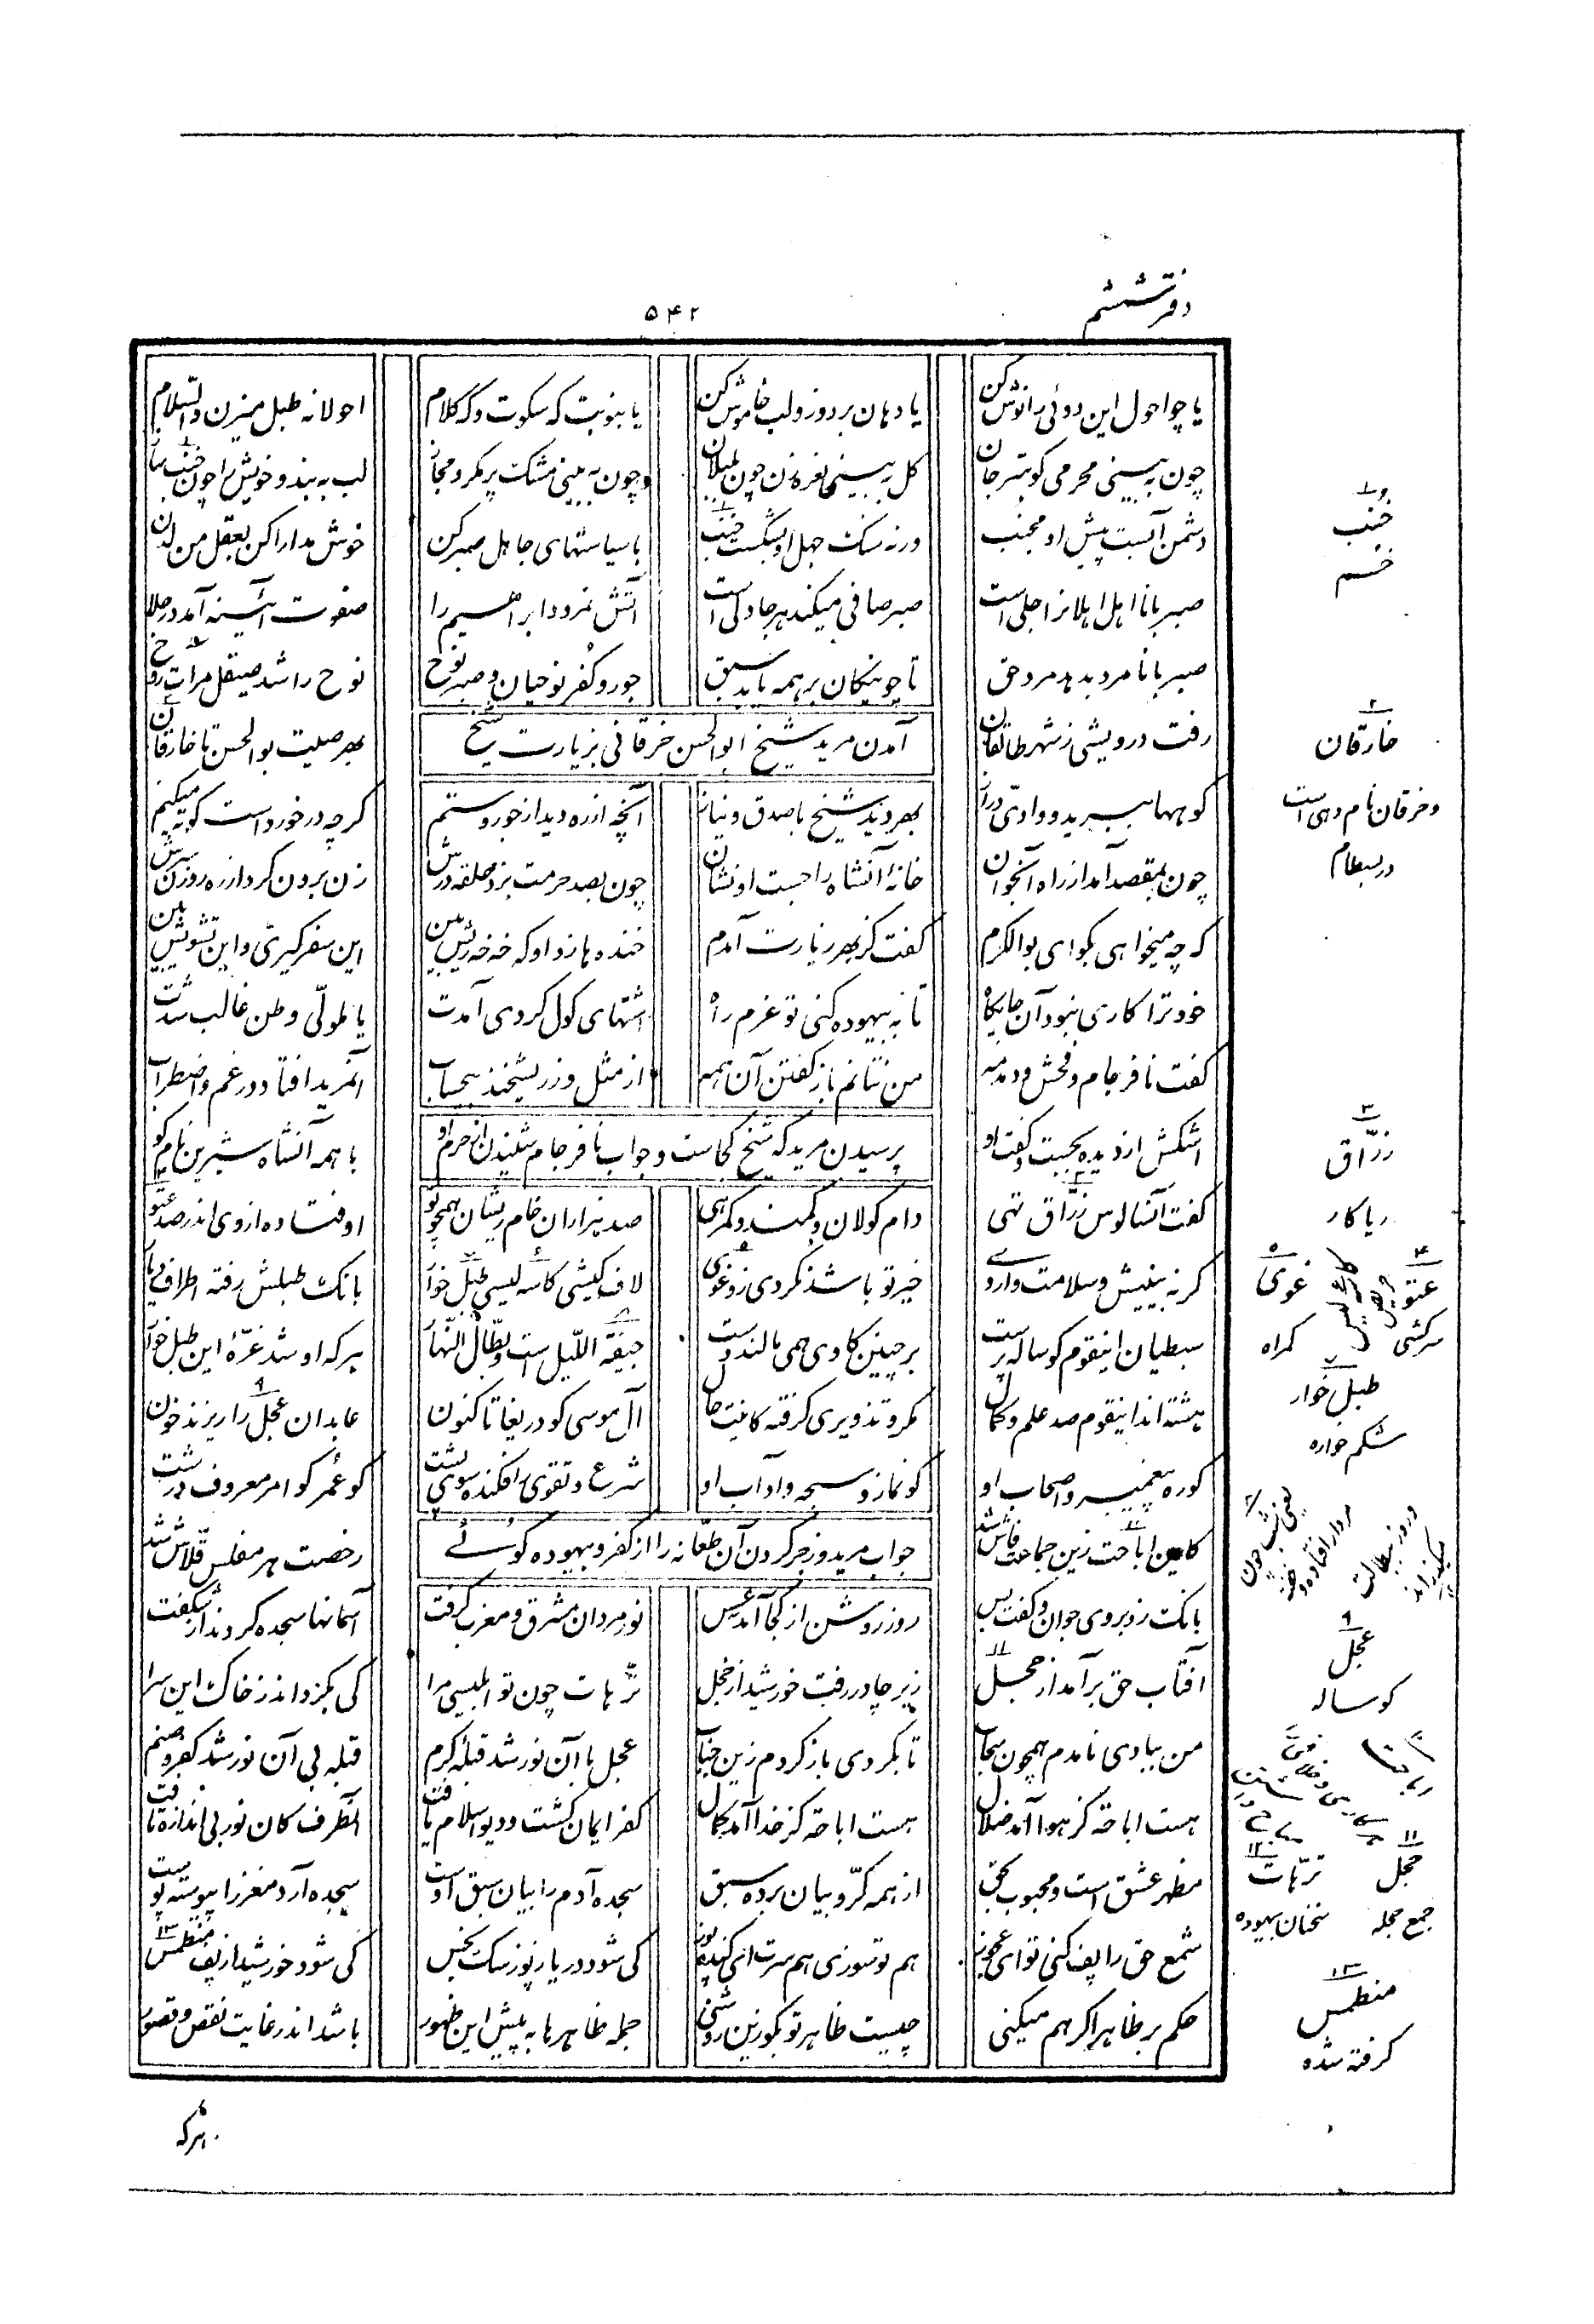 دفتر ششم
۵۴۲
یا چو احول این دوئی را نوش کن یا دهان بر دوز و لب خاموش کن یا بنوبت که سکوت و که کلام احولانه طبل میزن والسّلام
چون به بینی محرمی کو سر جان کل به بینی نعره زن چون بلبلان چون به بینی مشک پر مکر و مجاز لب به بند و خویش را چون خنب ساز
دشمن آبست پیش او مجنب ورنه سنک جهل او بشکست خنب با سیاستهای جاهل صبر کن خوش مدارا کن بعقل من لدن
صبر با نا اهل اهلانرا جلی است صبر صافی میکند هر جا دلی است آتش نمرود ابراهیم را صفوت آئینه آمد در جلا
صبر با نامرد بدهد مرد حق تا چو نیکان بر همه یابد سبق جور و کفر نوحیان و صبر نوح نوح را شد صیقل مرآت روح
آمدن مرید شیخ ابوالحسن خرقانی بزیارت شیخ
رفت درویشی ز شهر طالقان بهر صیت بوالحسن تا خارقان
کوهها ببرید و وادی دراز بهر دید شیخ با صدق و نیاز آنچه از ره دید از جور و ستم کرچه در خورد است کوته میکنم
چون بمقصد آمد از راه آنجوان خانۀ آنشاه را جست او نشان چون بصد حرمت بزد حلقه درش زن برون کرد از ره روزن سرش
که چه میخواهی بکو ای بوالکرم کفت کز بهر زیارت آمدم خنده ها زد او که خه خه ریش بین این سفر کیری و این تشویش بین
خود ترا کاری نبود آن جایکاه تا به بیهوده کنی تو عزم راه اشتهای کول کردی آمدت یا ملولی وطن غالب شدت
کفت نافرجام و فحش و دمدمه من نتانم باز کفتن آن همه از مثل وز ریشخند بیحساب آنمرید افتاد در غم و اضطراب
پرسیدن مرید که شیخ کجاست و جواب نافرجام شنیدن از حرم او
اشکش از دیده بجست و کفت او با همه آنشاه شیرین نام کو
کفت آنسالوس زرّاق تهی دام کولان و کمند و کمرهی صد هزاران خام ریشان همچو تو اوفتاده از وی اندر صد عتو
کر نه بینیش و سلامت وا روی خیر تو باشد نکردی زو غوی لاف کیشی کاسه لیسی طبل خوار بانک طبلش رفته اطراف دیار
سبطیان اینقوم کوساله پرست بر چنین کاوی همی مالند دست جیفة اللّیل است و بطّال النّهار هرکه او شد غرّۀ این طبل خوار
هشته اند اینقوم صد علم و کمال مکر و تذویری کرفته کاینت حال آل موسی کو دریغا تا کنون عابدان عجل را ریزند خون
کو ره پیغمبر و اصحاب او کو نماز و سبحه و آداب او شرع و تقوی را فکنده سوی پشت کو عمر کو امر معروف درشت
جواب مرید و زجر کردن آن طعّانه را از کفر و بیهوده کوئی
کاین اباحت زین جماعت فاش شد رخصت هر مفلس قلّاش شد
بانک زد بر وی جوان و کفت بس روز روشن از کجا آمد عسس نور مردان مشرق و مغرب کرفت آسمانها سجده کردند از شکفت
آفتاب حق برآمد از حجل زیر چادر رفت خورشید از خجل ترّهات چون تو ابلیسی مرا کی بکرداند ز خاک این سرا
من ببادی نامدم همچون سحاب تا بکردی باز کردم زین جناب عجل با آن نور شد قبلۀ کرم قبله بی آن نور شد کفر و صنم
هست اباحة کز هوا آمد ضلال هست اباحة کز خدا آمد کمال کفر ایمان کشت و دیو اسلام یافت آنطرف کان نور بی اندازه تافت
مظهر عشق است و محبوب بحق از همه کرّوبیان برده سبق سجده آدم را بیان سبق اوست سجده آرد مغز را پیوسته پوست
شمع حق را پف کنی تو ای عجوز هم تو سوزی هم سرت ای کنده پوز کی شود دریا ز پوز سک نجس کی شود خورشید از پف منطمس
حکم بر ظاهر اکر هم میکنی چیست ظاهرتر بکو زین روشنی جمله ظاهرها به پیش این ظهور باشد اندر غایت نقص و قصور
هرکه
خنب
خم
خارقان
و خرقان نام دهی است
در بسطام
زرّاق
ریا کار
عتو
سرکشی
غوی
کمراه
طبل خوار
شکم خواره
یعنی شب چون
مردار افتاده و خفته
و روز ببطالت
میکذراند
عجل
کوساله
حجل
جمع حجله
ترّهات
سخنان بیهوده
منطمس
کرفته شده